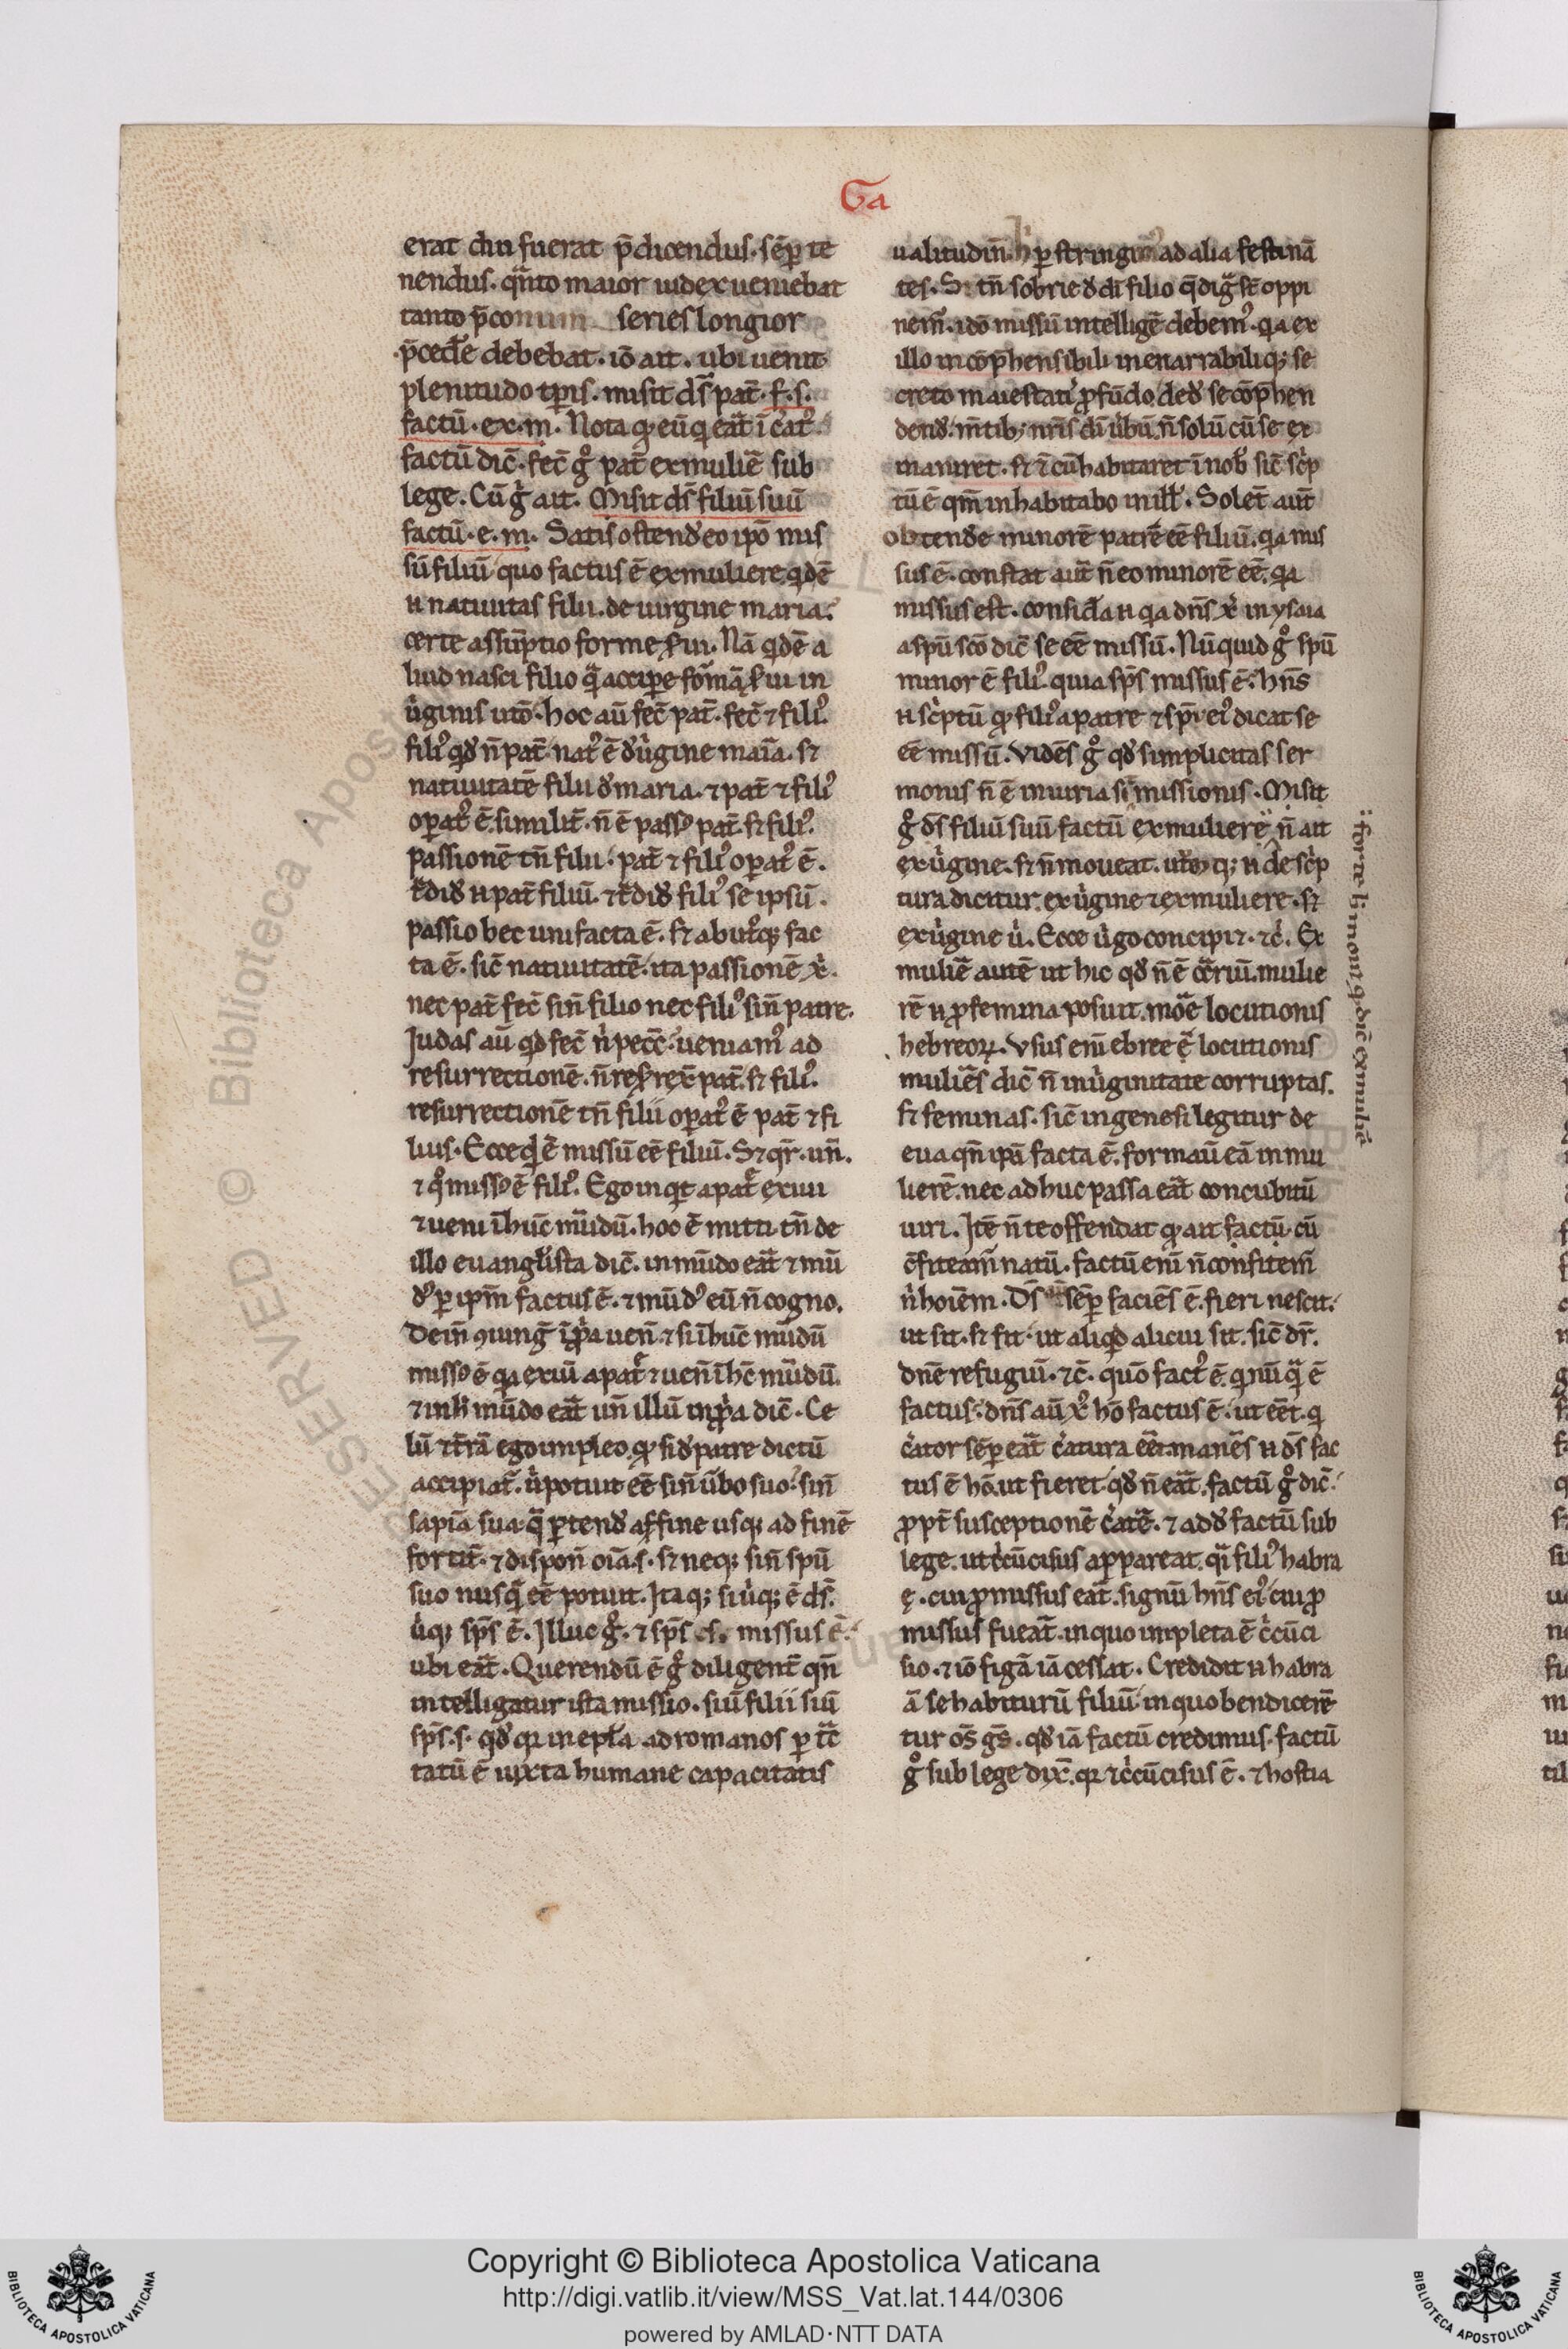 Ga
erat diu fuerat p̄dicendus. sēp te
nendus. qͣnto maior iudex ueniebat
tanto p̄conum series longior
p̄ced̄e debebat. iō ait. ubi uenit
plenitudo tp̄is. misit ds̄ pat̄. f. s.
factū. ex. m. Nota qꝫ eū q eat̄ ī c̓atꝰ
factū dic̄. fec̄ gͦ pat̄ ex muliē sub
lege. Cū gͦ ait. Misit ds̄ filiū suū
factū. e. m. Satis ostend̄ eo ip̄o mis
sū filiū quo factus ē ex muliere. qdē
n natiuitas filii. de uirgine maria.
certe assūptio forme ẜui. Nā qdē a
liud nasci filio qͣ̄ accipe formā ẜui in
u̓ginis utō. hoc aū fec̄ pat̄. fec̄ ⁊ filiꝰ.
filiꝰ qd̄ n̄ pat̄ natꝰ ē d̄ u̓gine maīa. ſꝫ
natiuitatē filii d̄ maria. ⁊ pat̄ ⁊ filiꝰ
opatꝰ ē. similit̄. n̄ ē passꝰ pat̄. ſꝫ filiꝰ.
passionē tn̄ filii. pat̄ ⁊ filiꝰ opatꝰ ē.
t̄did̄ n pat̄ filiū. ⁊ t̄did̄ filiꝰ se ipsū.
passio hec uni facta ē. ſꝫ ab utͦqꝫ fac
ta ē. sic̄ natiuitatē. ita passionē xͥ.
nec pat̄ fec̄ sin̄ filio nec filiꝰ sin̄ patre.
Judas aū qd fec̄ nͥ pecc̄. ueniamꝰ ad
resurrectionē. n̄ reẜrex̄ pat̄. ſꝫ filiꝰ.
resurrectionē tn̄ filii opatꝰ ē pat̄ ⁊ fi
lius. Ecce qͥ ē missū eē filiū. Sꝫ qr̄. un̄.
⁊ qͦ missꝰ ē filiꝰ. Ego inqͥt a pat̄ exiui
⁊ ueni ī hūc mūdū. hoc ē mitti. tn̄ de
illo euangl̄ista dic̄. in mūdo eat̄ ⁊ mū
dꝰ p ip̄m factus ē. ⁊ mūdꝰ eū n̄ cogno.
Dein̄ ꝯiunḡ ī pͥa uen̄. ⁊ si ī hūc mūdū
missꝰ ē qa exiū a pat̄ ⁊ uen̄ ī hc̄ mūdū.
⁊ in h̄ mūdo eat̄ un̄ illū in pͥa dic̄. Ce
lū ⁊ t̄rā ego impleo. qꝫ si d̄ patre dictū
accipiat̄. uͥ potuit eē sin̄ ūbo suo. sin̄
sapiā sua. qͣ̄ ptend̄ a ffine usqꝫ ad finē
fortit̄. ⁊ dispon̄ oīa. s. ſꝫ neqꝫ sin̄ spū
suo nusqͣ̄ eē potuit. Itaqꝫ si ūqꝫ ē ds̄.
u̓qꝫ sps̄ ē. Illuc gͦ. ⁊ sps̄ missus ē.
ubi eat̄. Querendū ē gͦ diligent̄ qn̄
intelligatur ista missio. siū filii siū
sps̄. s. qd̄ qꝛ in epl̄a ad romanos p t̄c
tatū ē iuxta humane capacitatis
ualitudin̄. h̄ p stringimꝰ ad alia festinā
tes. Si tn̄ sobrie d̄ dī filio q̄ diḡ s̄t oppi
nemꝰ. ideo missū intelliḡe debemꝰ. qa ex
illo incōphensibili inenarrabiliqꝫ se
creto maiestatͥ pfūdo. ded̄ se cōphen
dend̄. m̄tibꝫ nr̄is dī ūbū. n̄ solū cū se ex
inaniret. ſꝫ ⁊ cū habitaret ī nob̄ sic̄ sc̓p
tū ē qm̄ inhabitabo in ill̄. Solet̄ aūt
obtende minorē patre eē filiū. qa mis
sus ē. constat aūt n̄ eo minorē eē. qa
missus est. consida n qa dn̄s xͥ in ysaia
a spū scō dic̄ se eē missū. Nūquid gͦ spū
minor ē filiꝰ. quia sps̄ missus ē. hn̄s
n sc̓ptū qꝫ filiꝰ a patre ⁊ sp̄u eiꝰ dicat se
eē missū. Vidēs gͦ qd̄ simplicitas ser
monis n̄ ē iniuria si missionis. Misit
gͦ ds̄ filiū suū factū ex muliere n̄ ait
ex u̓gine. ſꝫ n̄ moueat. utͦqꝫ n de sc̓p
tura dicitur. ex u̓gine ⁊ ex muliere. ſꝫ
ex u̓gine ú. Ecce u̓go concipiꝫ. ⁊c̄. Ex
muliē autē ut hic qd̄ n̄ ē c̄rariū. mulie
rē n p femina posuit. more locutionis
hebreoꝝ. Vsus enī ebree ę̄ locutionis
muliēs dic̄ n̄ in u̓ginitate corruptas.
ſꝫ feminas. sic̄ in genesi legitur de
eua qn̄ ipā facta ē. formaū eā in mu
lierē. nec adhuc passa eat̄ concubitū
uiri. Itē n̄ te offendat qꝫ ait factū. cū
c̄fiteam̄ natū. factū enī n̄ confitem̄
nͥ hoīem. Ds̄ sēp faciēs ē. fieri nescit.
ut sit. ſꝫ fit. ut aliqd alicui sit. sic̄ dr̄.
dn̄e refugiū. ⁊c̄. quō factꝰ ē. q nūqͣ̄ ē
factus. dn̄s aū xͥ hō factus ē. ut eēt. q
c̓ator sēp eat̄ c̓atura eēt. manēs n ds̄ fac
tus ē hō. ut fieret. qd̄ n̄ eat̄. factū gͦ dic̄.
ppt̄ susceptionē c̓atē. ⁊ add̄ factū sub
lege. ut c̓cūcisus appareat. qͥ filiꝰ habra
ę. cui pmissus eat̄. signū hn̄s eiꝰ cui p
missus fueat̄. in quo impleta ē c̓cūci
sio. ⁊ iō figā iā cessat. Credidit n habra
ā se habiturū filiū in quo bendicerē
tur os̄ gs̄. qd̄ iā factū credimus. factū
gͦ sub lege dix̄. qꝛ ⁊ c̓cūcisus ē. ⁊ hostia
forte h̄ mouet qꝫ dic̄ ex muliē
© Biblioteca Apost
ESERVED
Copyright © Biblioteca Apostolica Vaticana
http://digi.vatlib.it/view/MSS_Vat.lat.144/0306
powered by AMLAD·NTT DATA
BIBLIOTECA APOSTOLICA VATICANA
BIBLIOTECA APOSTOLICA VATICANA